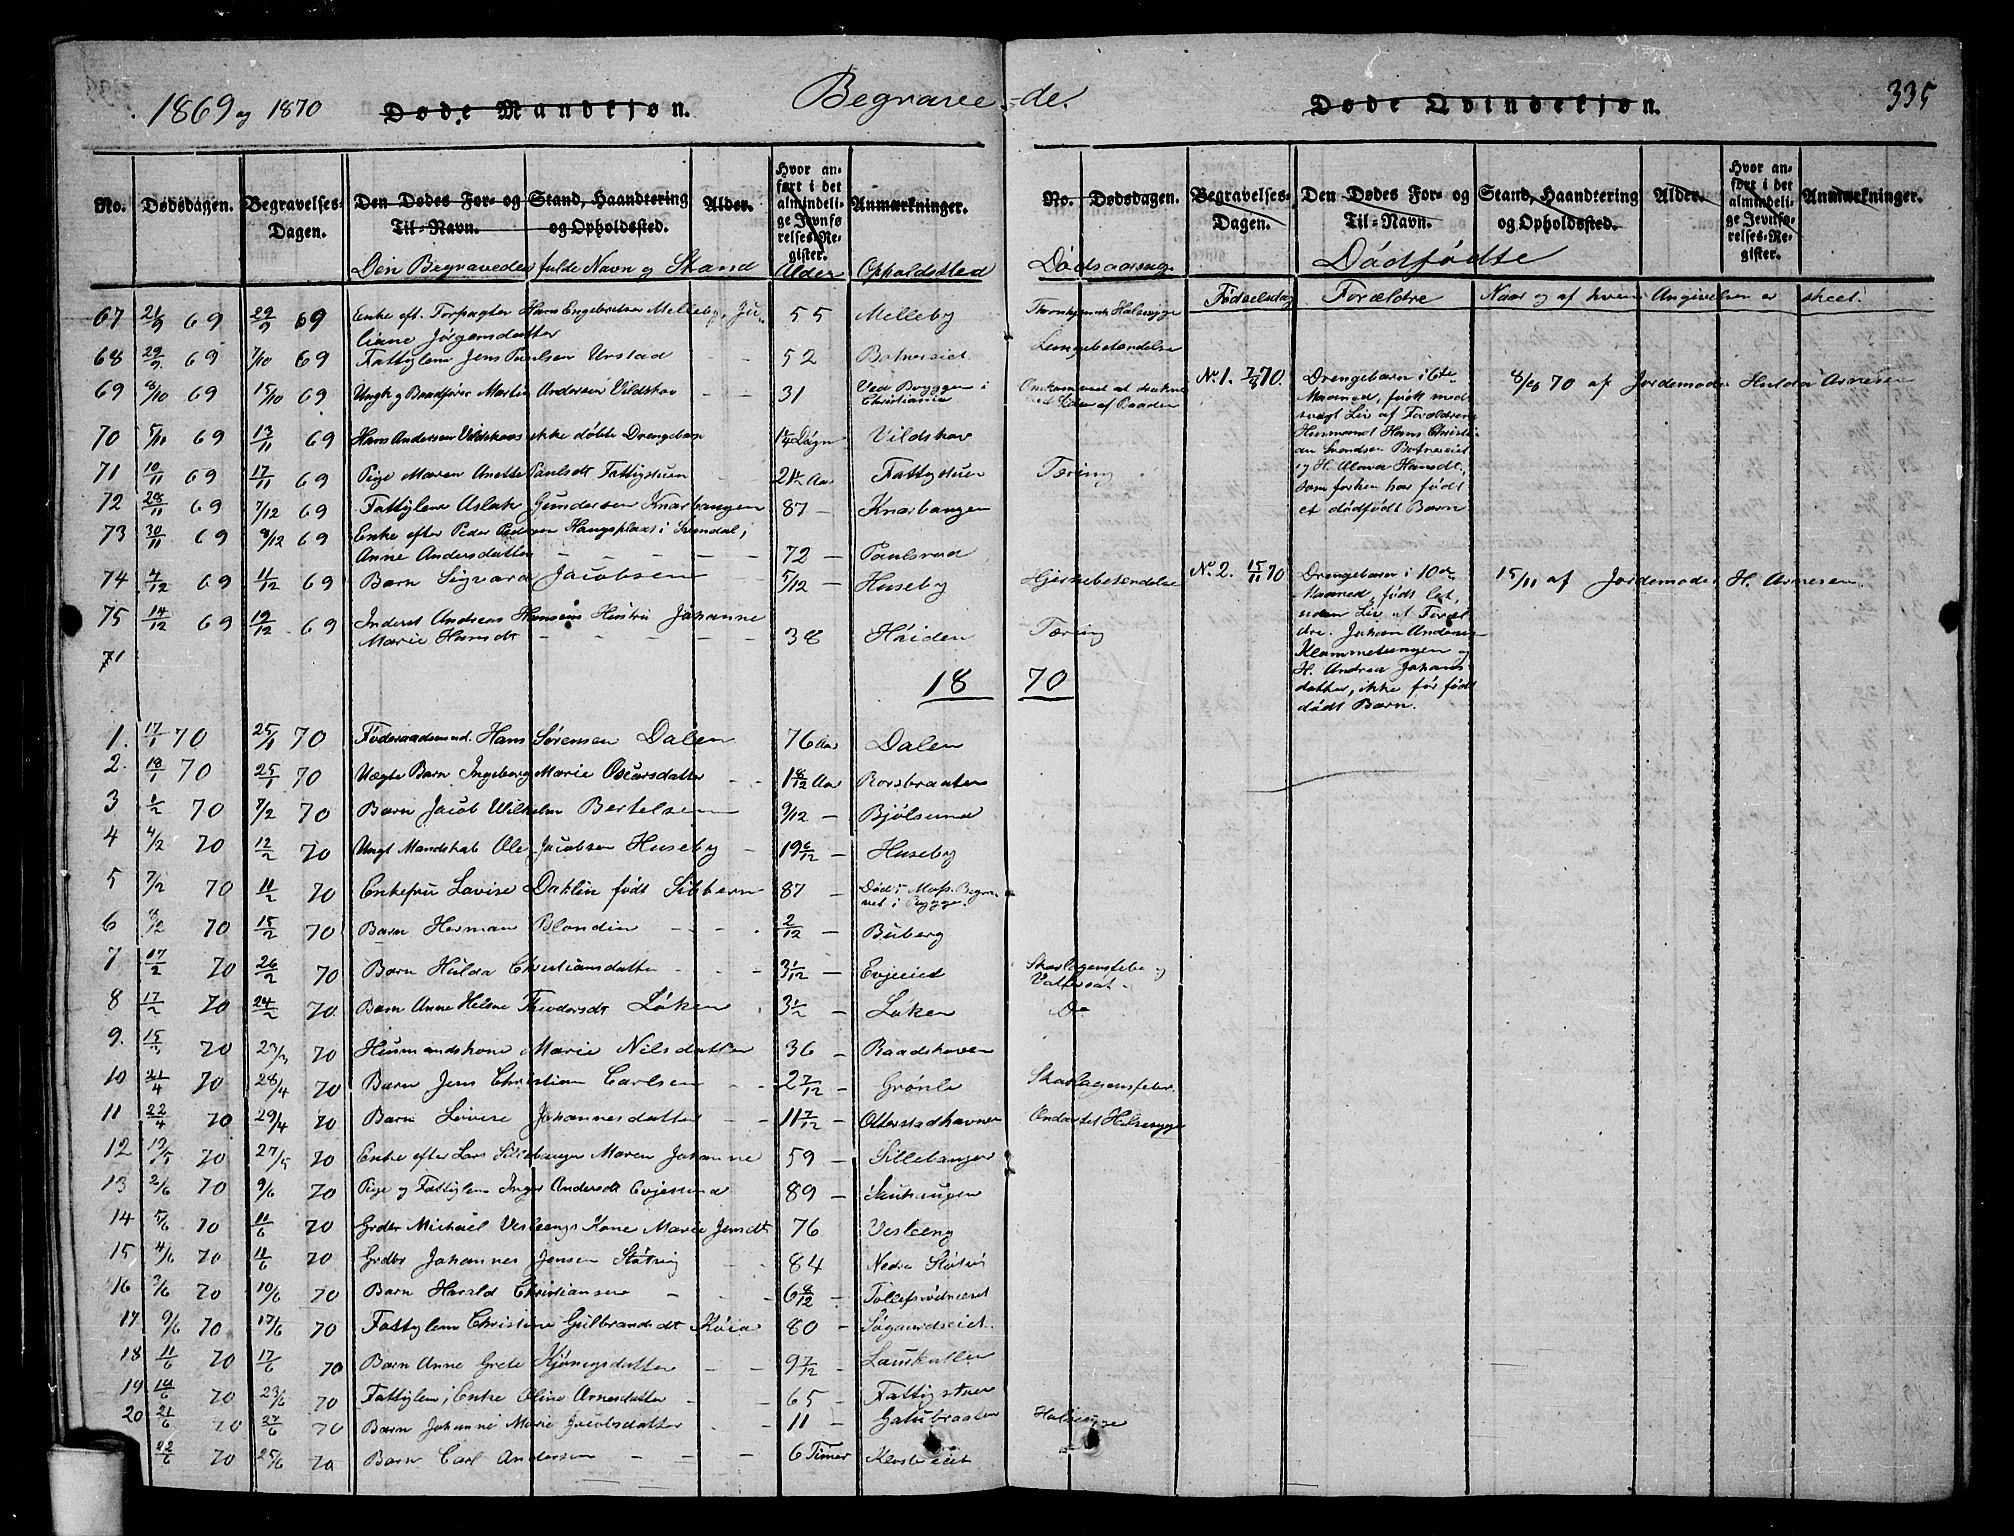 1869 og 1870 Døde Mandkjøn. Begravede. Døde Qvindekjøn. 335
No. Dødsdagen. Begravelses-Dagen. Den Dødes For- og Til-Navn. Stand, Haandtering og Opholdssted. Alder. Hvor anført i det almindelige Jevnførelses-Register. Anmærkninger.
No. Dødsdagen. Begravelses-Dagen. Den Dødes For- og Til-Navn. Stand, Haandtering og Opholdssted. Alder. Hvor anført i det almindelige Jevnførelses-Register. Anmærkninger.
Den Begravedes fulde Navn og Stand Alder Opholdsted Dødsaarsag Dødfødte
Fødselsdag Forældre Naar og af hvem Angivelsen er skeet.
67 21/9 69 29/9 69 Enke eft. Forpagter Hans Engebretsen Melleby, Ju-
liane Jørgensdatter 55 Melleby Halssyge
68 29/9 69 7/10 69 Fattiglem Jens Paulsen Urstad 52 Botnereiet Lungebetændelse
69 8/10 69 15/10 69 Ungk. og Baadfører Martin Andersen Vildskov 31 Ved Bryggen i
Christiania Omkommet ved at drukne
70 5/11 69 13/11 69 Hans Andersen Vildskovs ikke døbte Drengebarn 1 1/4 Døgn Vildskov
71 10/11 69 17/11 69 Pige Maren Anette Paulsdt Fattigstuen 24 Aar Fattigstuen Tæring
72 28/11 69 7/12 69 Fattiglem Aslak Gundersen Knarbangen 87 — Knarbangen
73 30/11 69 8/12 69 Enke efter Peder Pedersen Haugsplads i Somdal,
Anne Andersdatter 72 — Paulsrud
74 4/12 69 11/12 69 Barn Sigvard Jacobsen 5/12 — Huseby Hjernebetændelse
75 14/12 69 19/12 69 Inderst Andreas Hansens Hustru Johanne
Marie Hansdt 38 Høiden Tæring
71
1870
1. 17/1 70 25/1 70 Føderaadsmand. Hans Sørensen Dalen 76 Aar Dalen
2. 18/1 70 25/1 70 Uægte Barn Ingeborg Marie Oscarsdatter 1 8/12 Aar Rorsbraaten
3 1/2 70 7/2 70 Barn Jacob Wilhelm Bertelsen 9/12 — Bjølsund
4 4/2 70 12/2 70 Ungt Mandskab Ole Jacobsen Huseby 19 6/12 — Huseby
5 7/2 70 11/2 70 Enkefru Lovise Dahlin født Sibbern 87 — Død i Moss. Begra-
vet i Rygge.
6 8/2 70 15/2 70 Barn Herman Blondin 2/12 — Buberg
7 17/2 70 26/2 70 Barn Hulda Christiansdatter 3 1/12 — Evjeeiet Skarlagensfeber og
Vattersot
8 17/2 70 24/2 70 Barn Anne Helene Theodorsdt Løken 3 1/2 — Løken Do
9. 15/3 70 23/3 70 Husmandskone Marie Nilsdatter 36 — Raadshaven
10 21/4 70 28/4 70 Barn Jens Christian Carlsen 2 7/12 — Grønli Skarlagensfeber.
11 22/4 70 29/4 70 Barn Lovise Johannesdatter 11 7/12 — Otterstadhavnen Ondartet Halssyge
12 19/5 70 27/5 70 Enke efter Lars Sillebangen Maren Johanne 59 — Sillebangen
13 2/6 70 9/6 70 Pige og Fattiglem Inger Andersdt Evjesund 89 — Sauhaugen
14 5/6 70 11/6 70 Grdbr Michael Vesleengs Kone Marie Jensdt 76 Vesleeng
15 4/6 70 11/6 70 Grdbr Johannes Jensen Støtvig 84 Nedre Støtvig
16 3/6 70 10/6 70 Barn Harald Christiansen 6 8/12 — Tollefsrødneset
17 9/6 70 17/6 70 Fattiglem Christine Gulbrandsdt 80 — Søgaardseiet.
18 11/6 70 17/6 70 Barn Anne Grete Kjønigsdatter 9 7/12 — Lauskollen
19 14/6 70 23/6 70 Fattiglem, Enke Oline Arnesdatter 65 — Fattigstuen
20 21/6 70 27/6 70 Barn Johanne Marie Jacobsdatter 11 — Galubraaten Halssyge
22/6 70 25/6 70 Barn Carl Andersen 6 Timer Klostereiet
No. 1. 7/8 70. Drengebarn i 6te
Maaned, født med
svagt Liv af Forældrene
Husmand Hans Christi-
an Svendsen Botnereiet
og H. Alma Hansdt,
som forhen har født
et dødfødt Barn
8/8 70 af Jordemoder Hulda Arnesen
No. 2. 15/11 70 Drengebarn i 10de
Maaned, født let,
uden Liv af Foræl-
dre Johan Anders-
Klommestuengen og
H. Andrea Johans-
datter, ikke før født
dødt Barn.
15/11 af Jordemoder H. Arnesen.